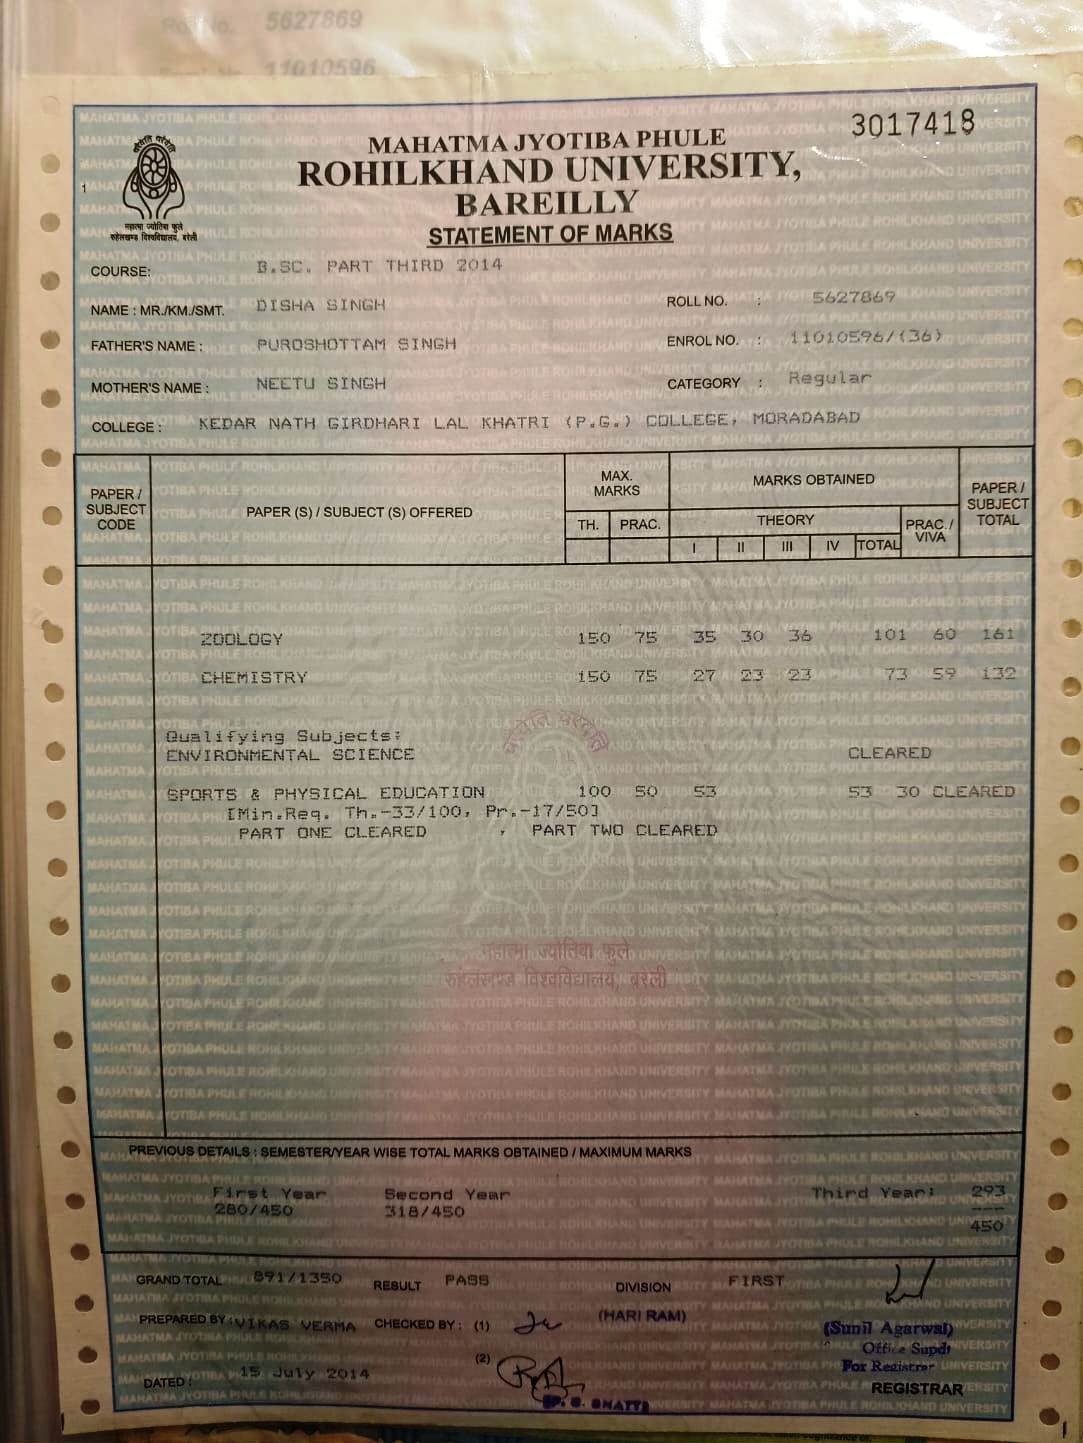 Roll No. 5627869
11010596
3017418
MAHATMA JYOTIBA PHULE
ROHILKHAND UNIVERSITY,
BAREILLY
STATEMENT OF MARKS
1
महात्मा ज्योतिबा फुले
रुहेलखण्ड विश्वविद्यालय, बरेली
COURSE: B.SC. PART THIRD 2014
NAME : MR./KM./SMT. DISHA SINGH ROLL NO. : 5627869
FATHER'S NAME : PUROSHOTTAM SINGH ENROL NO. : 11010596/(36)
MOTHER'S NAME : NEETU SINGH CATEGORY : Regular
COLLEGE : KEDAR NATH GIRDHARI LAL KHATRI (P.G.) COLLEGE, MORADABAD
PAPER / SUBJECT CODE PAPER (S) / SUBJECT (S) OFFERED MAX. MARKS MARKS OBTAINED PAPER / SUBJECT TOTAL
TH. PRAC. THEORY PRAC./ VIVA
I II III IV TOTAL
ZOOLOGY 150 75 35 30 36 101 60 161
CHEMISTRY 150 75 27 23 23 73 59 132
Qualifying Subjects:
ENVIRONMENTAL SCIENCE CLEARED
SPORTS & PHYSICAL EDUCATION 100 50 53 53 30 CLEARED
[Min.Req. Th.-33/100, Pr.-17/50]
PART ONE CLEARED , PART TWO CLEARED
महात्मा ज्योतिबा फुले
रुहेलखण्ड विश्वविद्यालय, बरेली
PREVIOUS DETAILS : SEMESTER/YEAR WISE TOTAL MARKS OBTAINED / MAXIMUM MARKS
First Year Second Year Third Year: 293
280/450 318/450 ---
450
GRAND TOTAL 891/1350 RESULT PASS DIVISION FIRST
PREPARED BY : VIKAS VERMA CHECKED BY : (1) (HARI RAM)
(Sunil Agarwal)
Office Supdt
For Registrar
(2)
DATED : 15 July 2014 REGISTRAR